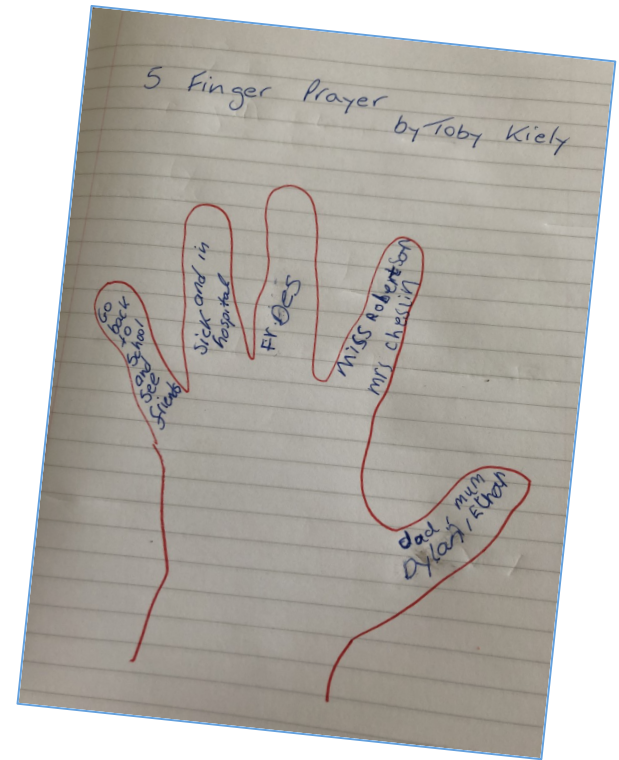 5 Finger Prayer
by Toby Kiely
Go
back
to
School
and
See
friends
Sick and in
hospital
Fr Des
Miss Robertson
Mrs Cheslin
dad, mum
Dylan, Ethan